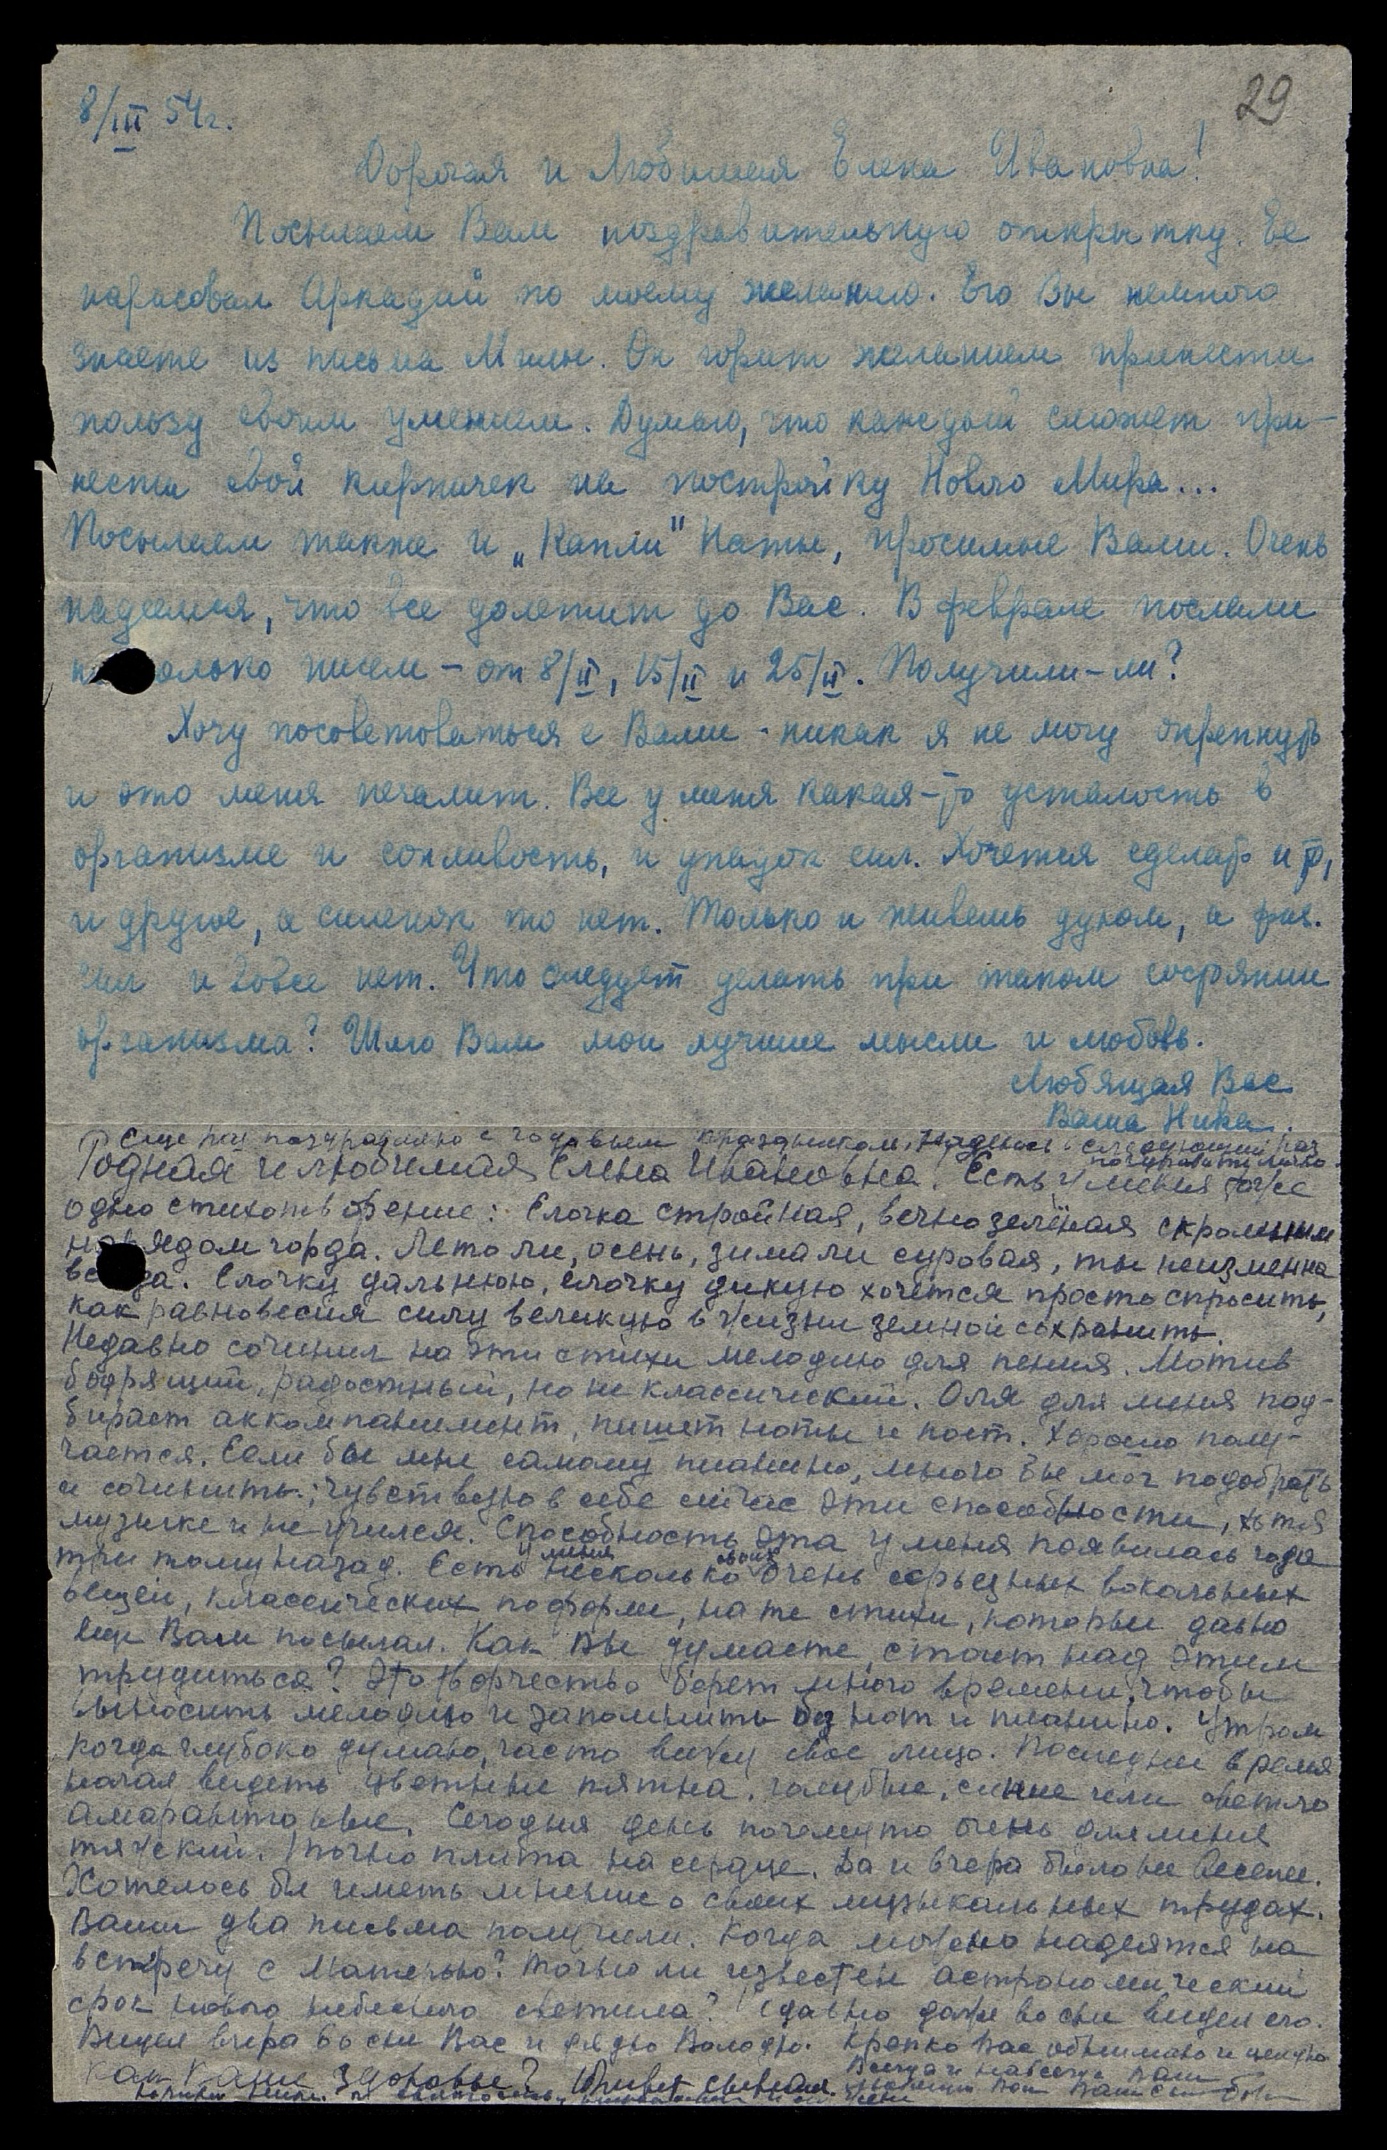 8/III 54г.
29
Дорогая и Любимая Елена Ивановна!
Посылаем Вам поздравительную открытку. Ее
нарисовал Аркадий по моему желанию. Его Вы немного
знаете из письма Милы. Он горит желанием принести
пользу своим умением. Думаю, что каждый сможет при-
нести свой кирпичек на постройку Нового Мира...
Посылаем также и „Капли" Наты, просимые Вами. Очень
надеемся, что все долетит до Вас. В феврале послали
несколько писем – от 8/II, 15/II и 25/II. Получили-ли?
Хочу посоветоваться с Вами - никак я не могу окрепнуть
и это меня печалит. Все у меня какая-то усталость в
организме и сонливость, и упадок сил. Хочется сделать и то,
и другое, а силенок то нет. Только и живешь духом, а физ.
сил и вовсе нет. Что следует делать при таком состоянии
организма? Шлю Вам мои лучшие мысли и любовь.
Любящая Вас
Ваша Ника.
Еще раз поздравляю с годовым праздником. Надеюсь следующий раз
поздравить лично.
Родная и любимая Елена Ивановна! Есть у меня тоже
одно стихотворение: Елочка стройная, вечно зелёная скромным
нарядом горда. Лето ли, осень, зима ли суровая, ты неизменна
всегда. Елочку дальнюю, елочку дикую хочется просто спросить,
как равновесия силу великую в жизни земной сохранить.
Недавно сочинил на эти стихи мелодию для пения. Мотив
бодрящий, радостный, но не классический. Оля для меня под-
бирает аккомпанимент, пишет ноты и поёт. Хорошо полу-
чается. Если бы мне самому пианино, много бы мог подобрать
и сочинить; чувствую в себе сейчас эти способности, хотя
музыке и не учился. Способность эта у меня появилась года
три тому назад. Есть у меня несколько своих очень серьезных вокальных
вещей, классических по форме, на те стихи, которые давно
еще Вам посылал. Как Вы думаете, стоит над этим
трудиться? Это творчество берет много времени, чтобы
выносить мелодию и запомнить без нот и пианино. Утром
когда глубоко думаю, часто вижу свое лицо. Последнее время
начал видеть цветные пятна, голубые, синие или светло
амарантовые. Сегодня день почему то очень для меня
тяжелый. Точно плита на сердце. Да и вчера было не веселее.
Хотелось бы иметь мнение о своих музыкальных трудах.
Ваши два письма получили. Когда можно надеятся на
встречу с Матерью? Точно ли известен астрономический
срок нового небесного светила? Недавно даже во сне видел его.
Видел вчера во сне Вас и дядю Володю. Крепко Вас обнимаю и целую
Как Ваше здоровье? Привет сынам. Всегда и навсегда Ваш